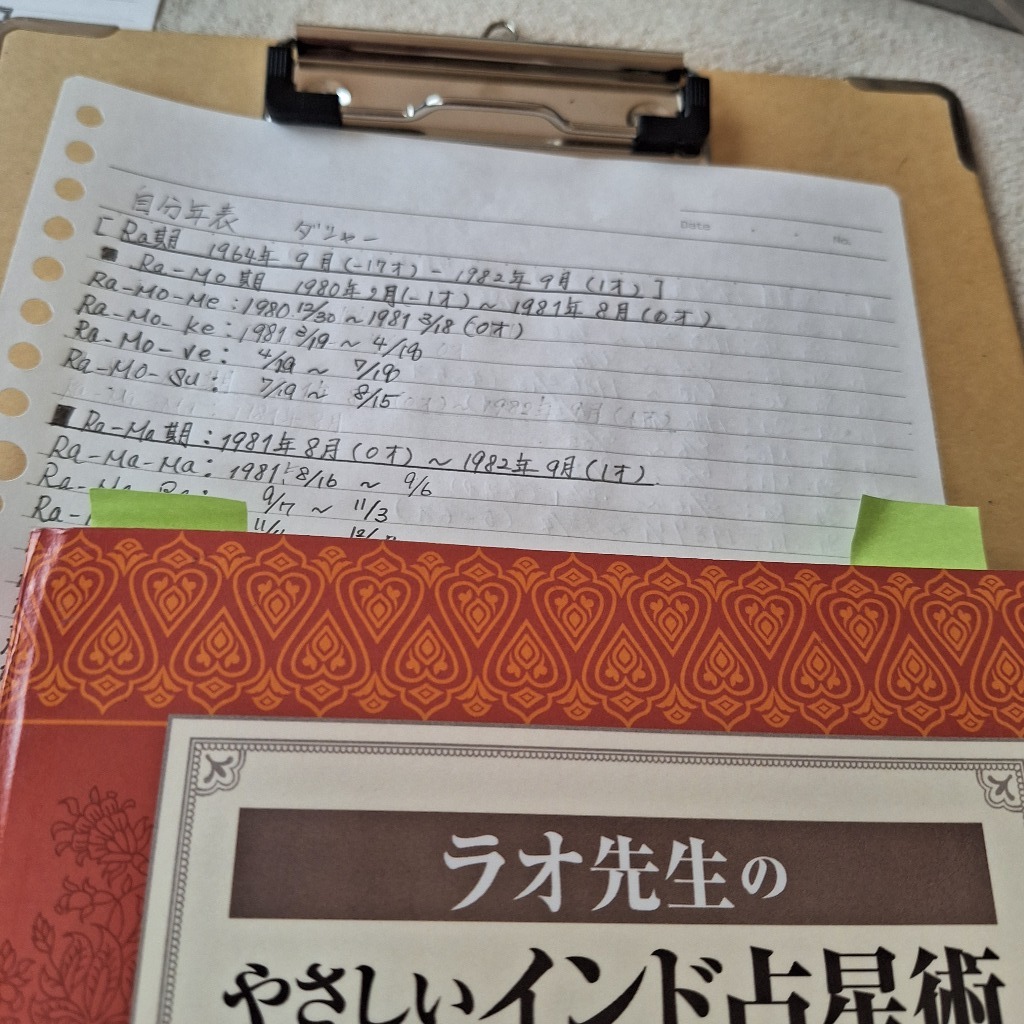 Date . . No.
自分年表 ダシャー
[Ra期 1964年 9月(-17才) - 1982年 9月 (1才)]
■ Ra-Mo期 1980年2月(-1才) ~ 1981年 8月 (0才)
Ra-Mo-Me : 1980 12/30 ~ 1981 3/18 (0才)
Ra-Mo-Ke : 1981 3/19 ~ 4/18
Ra-Mo-Ve : 4/19 ~ 7/18
Ra-Mo-Su : 7/19 ~ 8/15
■ Ra-Ma期 : 1981年 8月 (0才) ~ 1982年 9月 (1才)
Ra-Ma-Ma : 1981. 8/16 ~ 9/6
9/7 ~ 11/3
Ra-
ラオ先生の
やさしいインド占星術